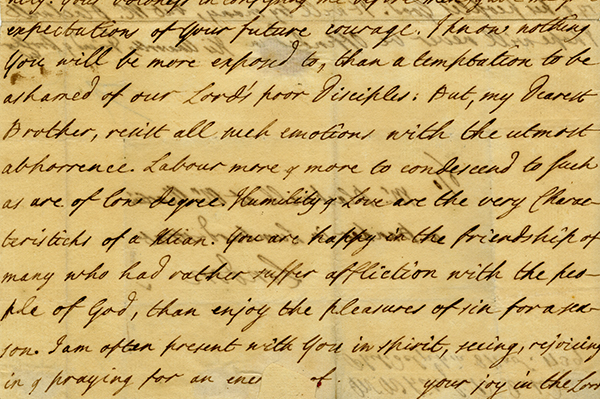 expectations of Your future courage. I know nothing
You will be more exposed to, than a temptation to be
ashamed of our Lord's poor Disciples: But, my Dearest
Brother, resist all such emotions with the utmost
abhorrence. Labour more & more to condescend to such
as are of low degree. Humility & Love are the very Charac-
teristicks of a Xtian. You are happy in the friendship of
many who had rather suffer affliction with the peo-
ple of God, than enjoy the pleasures of sin for a sea-
son. I am often present with You in spirit, seeing, rejoicing
in & praying for an of your joy in the Lord